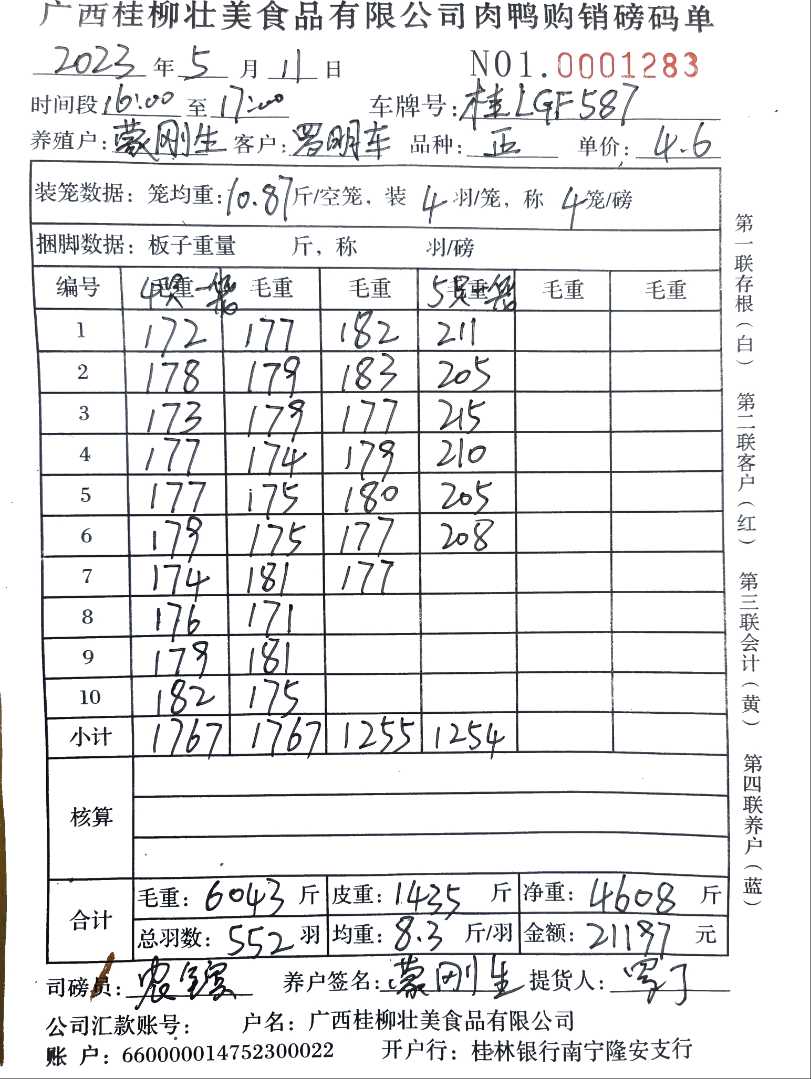 广西桂柳壮美食品有限公司肉鸭购销磅码单
2023 年 5 月 11 日 NO1.0001283
时间段 16:00 至 17:00 车牌号: 桂LGF587
养殖户: 蒙刚生 客户: 罗明车 品种: 正 单价: 4.6
装笼数据: 笼均重: 10.87 斤/空笼, 装 4 羽/笼, 称 4 笼/磅
捆脚数据: 板子重量 斤, 称 羽/磅
编号 毛重 毛重 毛重 毛重 毛重 毛重
1 172 177 182 211
2 178 179 183 205
3 173 179 177 215
4 177 174 179 210
5 177 175 180 205
6 179 175 177 208
7 174 181 177
8 176 171
9 179 181
10 182 175
小计 1767 1767 1255 1254
核算
合计 毛重: 6043 斤 皮重: 1435 斤 净重: 4608 斤
总羽数: 552 羽 均重: 8.3 斤/羽 金额: 21197 元
司磅员: 养户签名: 蒙刚生 提货人:
公司汇款账号: 户名: 广西桂柳壮美食品有限公司
账 户: 660000014752300022 开户行: 桂林银行南宁隆安支行
第一联存根(白) 第二联客户(红) 第三联会计(黄) 第四联养户(蓝)